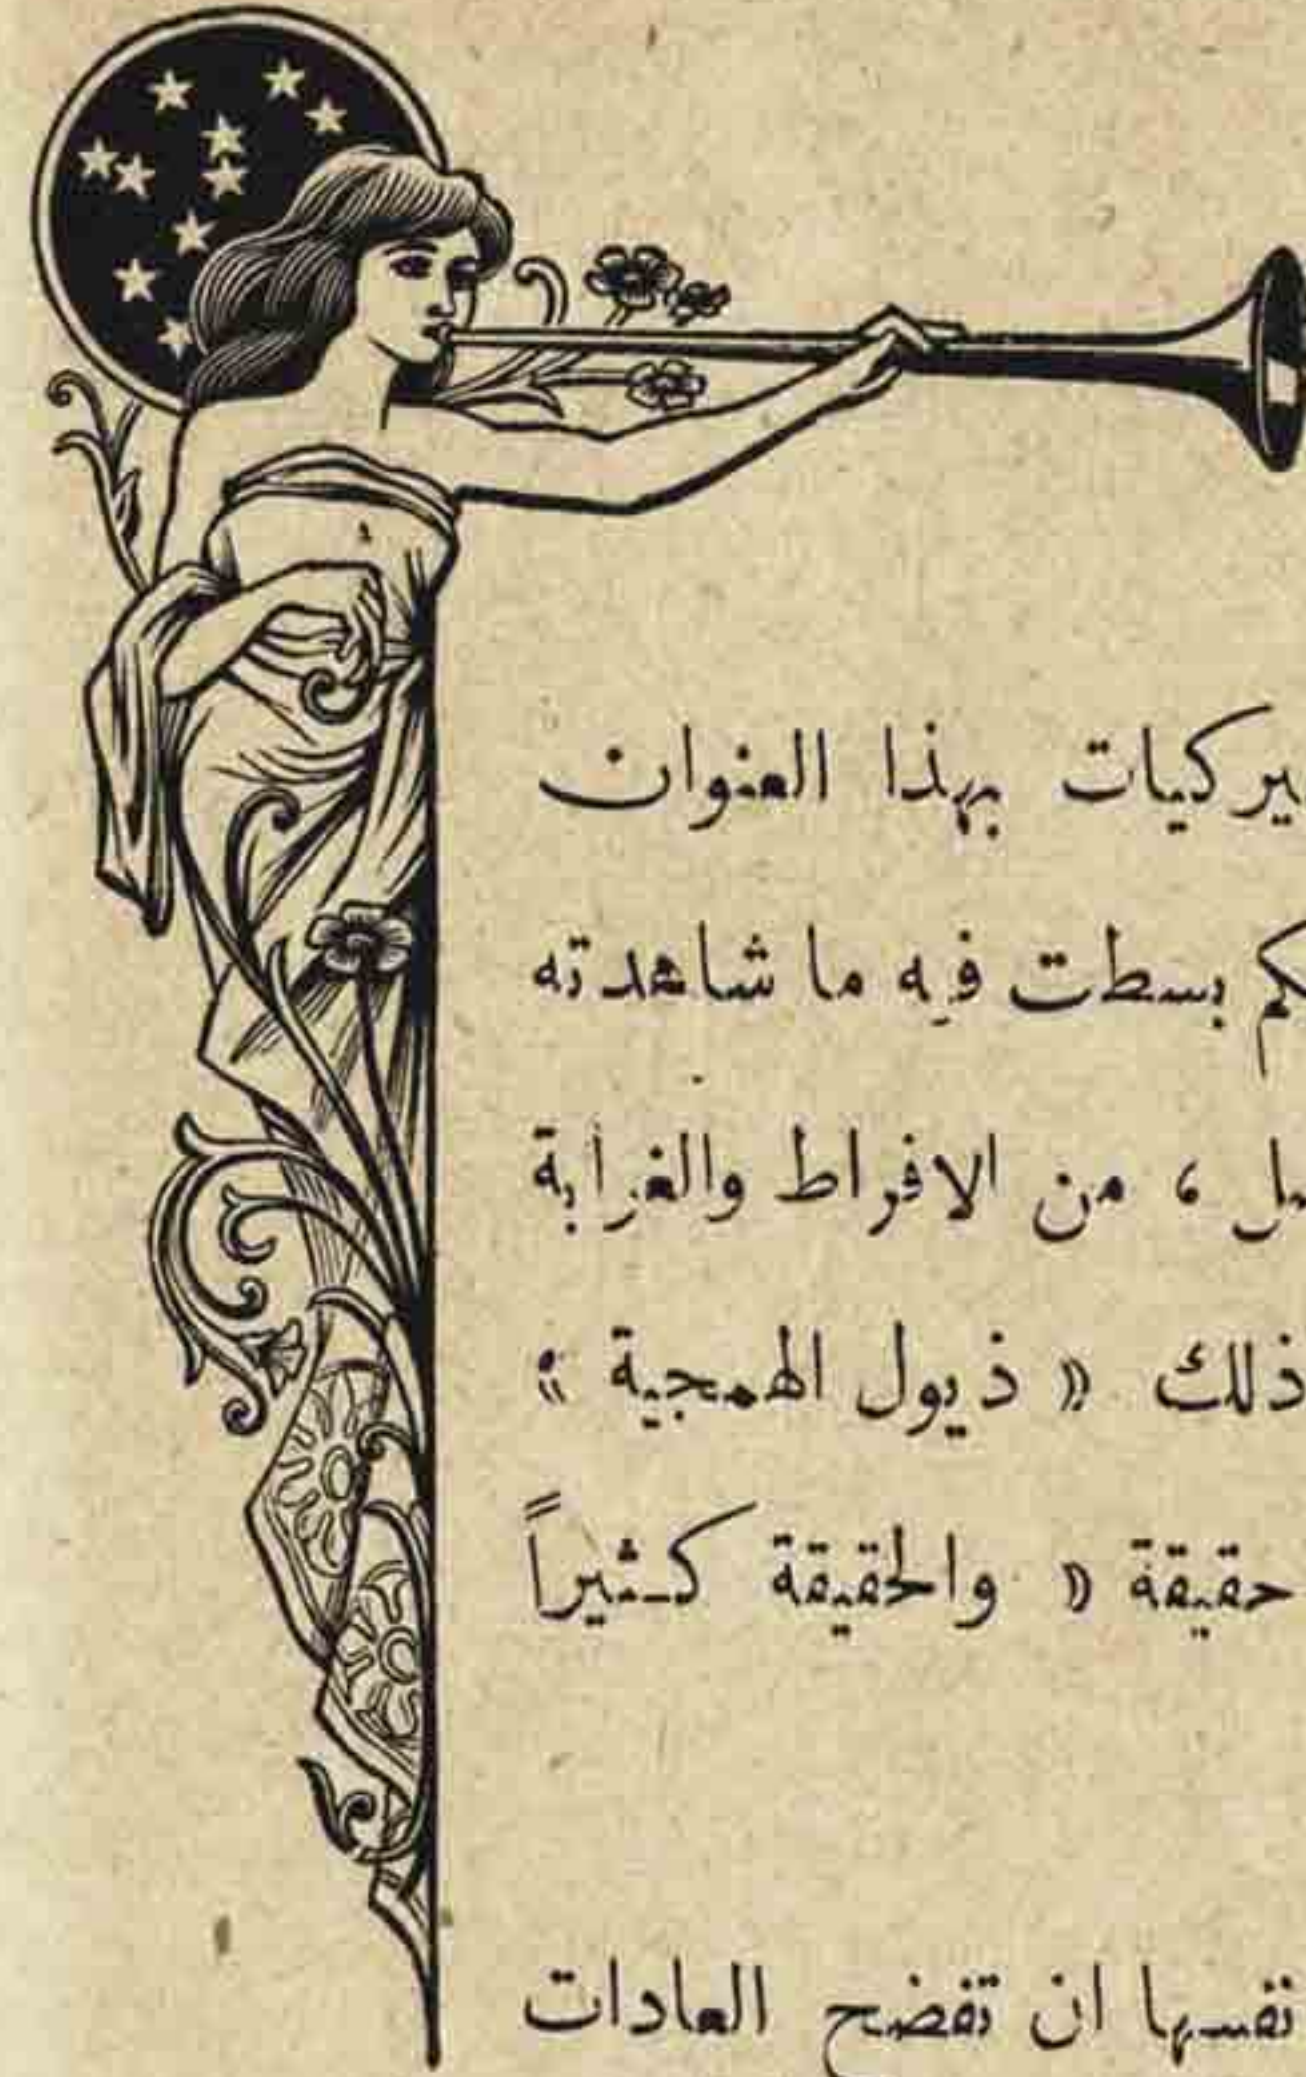 يركيات بهذا العنوان
كم بسطت فيه ما شاهدته
من الافراط والغرابة
ذلك « ذيول الهمجية »
حقيقة « والحقيقة كثيراً
نفسها ان تفضح العادات